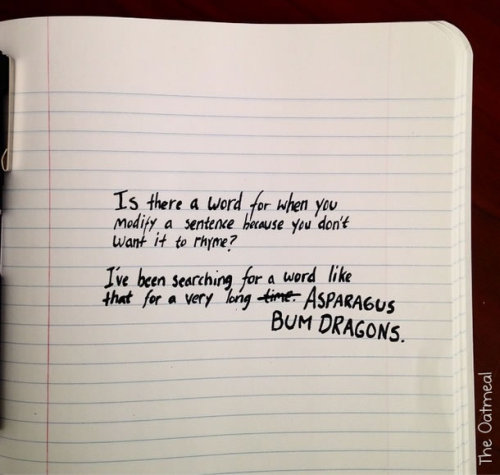 Is there a word for when you
modify a sentence because you don't
want it to rhyme?
I've been searching for a word like
that for a very long time. ASPARAGUS
BUM DRAGONS.
The Oatmeal